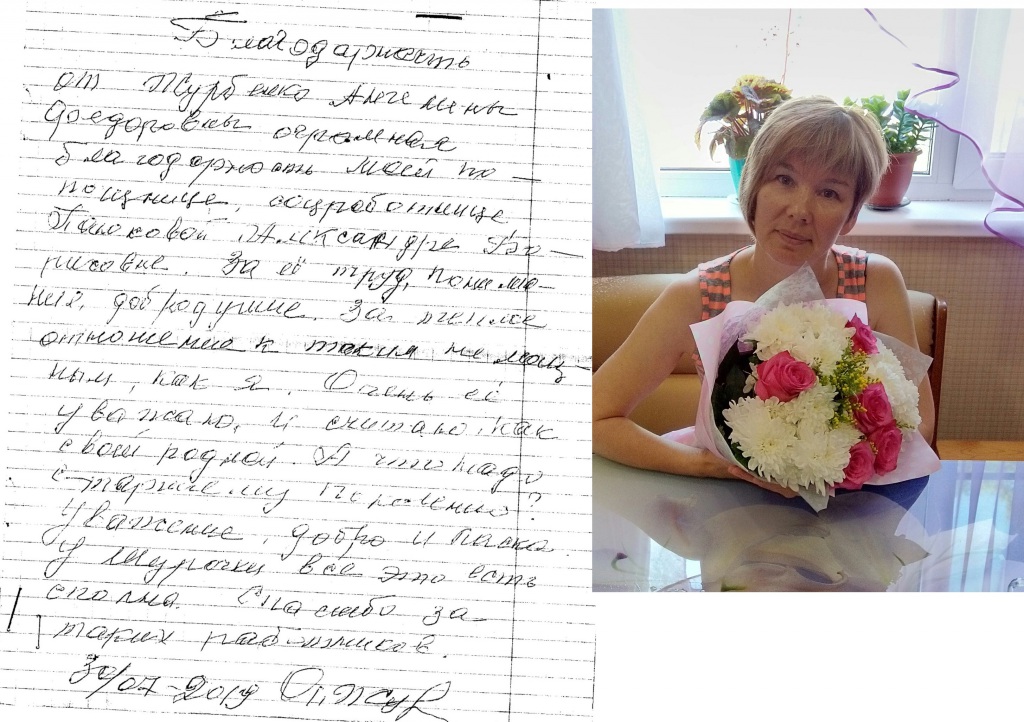 Благодарность
от Журбенко Ангелины
Федоровны огромная
благодарность моей по-
мощнице, соцработнице
Александре Бо-
рисовне. За её труд, понима-
ние, добродушие. За
отношение к таким немощ-
ным, как я. Очень её
уважаю, и считаю, как
своей родной. А что надо
старшему поколению?
Уважение, добро и ласка
у Шурочки все это есть
сполна. Спасибо за
таких работников.
30/07-2019